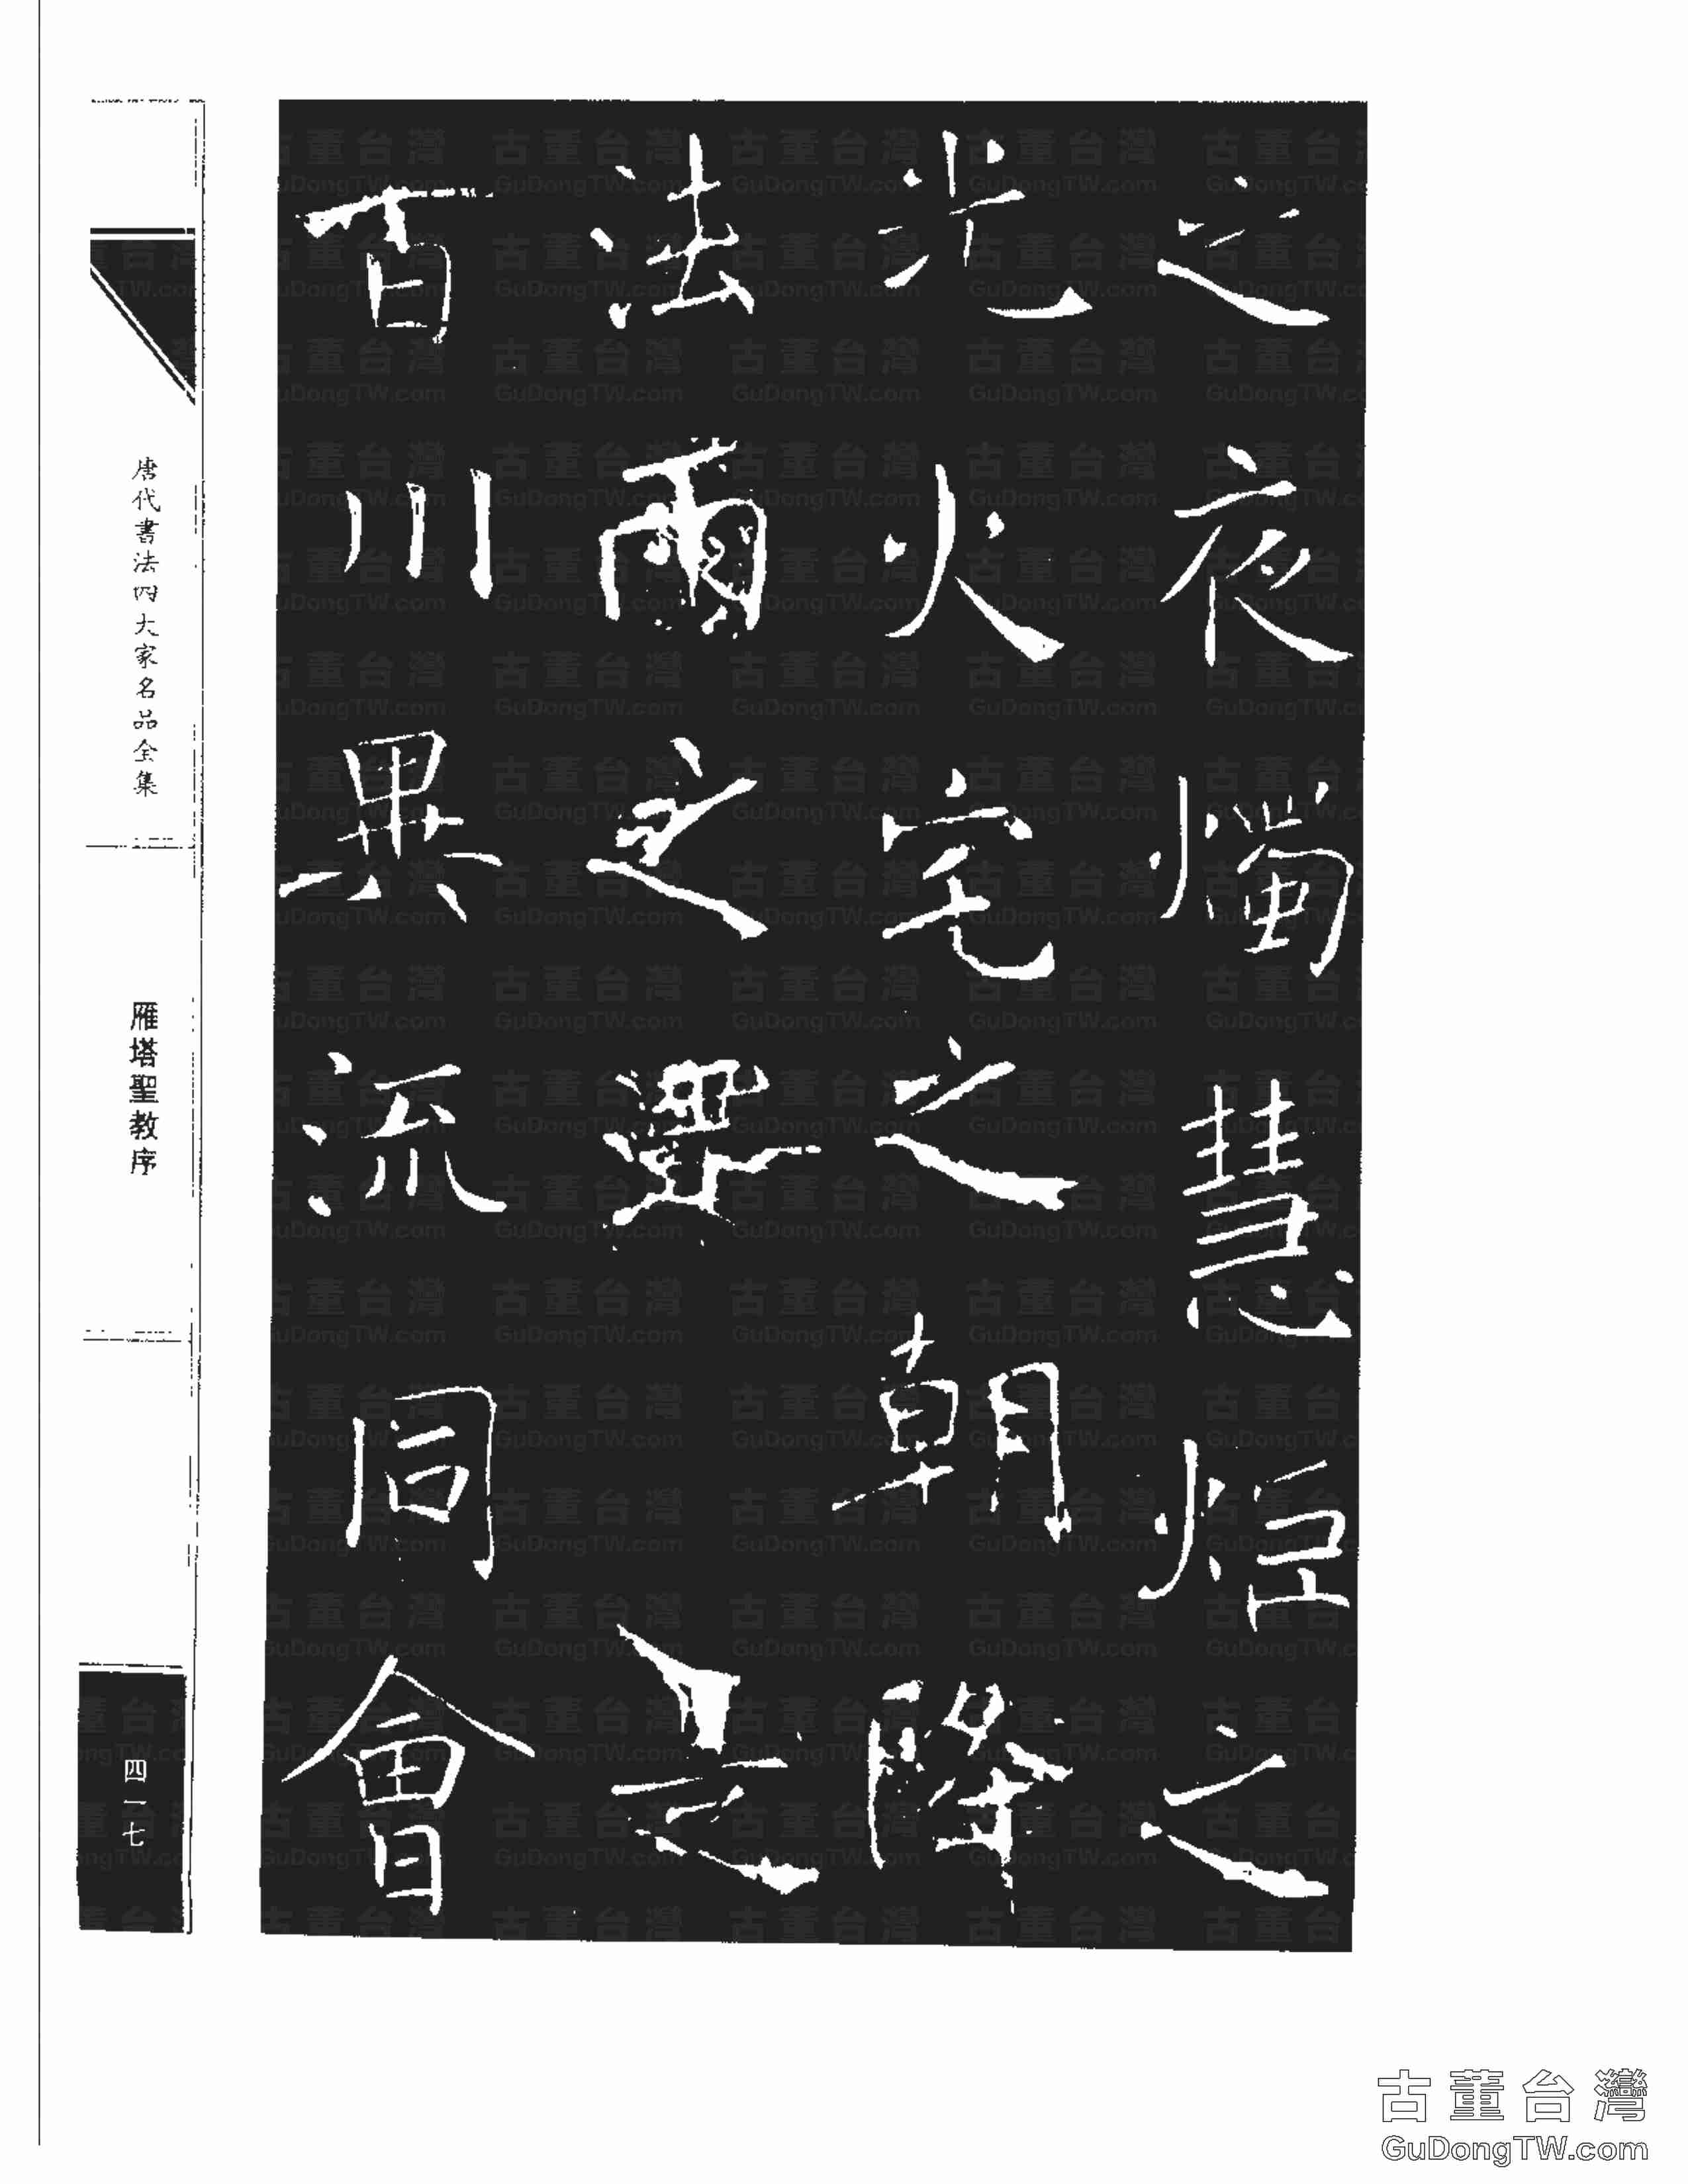 之夜燭慧炬之
光火宅之朝降
法雨之澤是
百川異流同會
唐代書法四大家名品全集
雁塔聖教序
四一七
古董台灣
GuDongTW.com